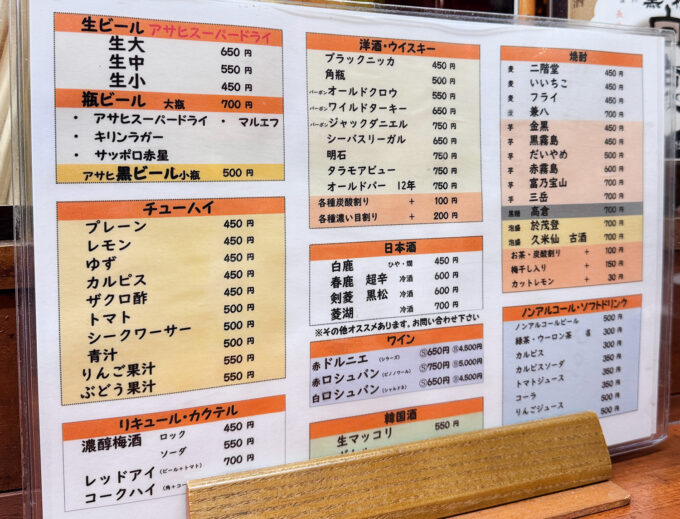 生ビール アサヒスーパードライ
生大 650円
生中 550円
生小 450円
瓶ビール 大瓶 700円
・ アサヒスーパードライ ・ マルエフ
・ キリンラガー
・ サッポロ赤星
アサヒ黒ビール小瓶 500円
チューハイ
プレーン 450円
レモン 450円
ゆず 450円
カルピス 450円
ザクロ酢 450円
トマト 500円
シークワーサー 500円
青汁 550円
りんご果汁 550円
ぶどう果汁 550円
リキュール・カクテル
濃醇梅酒 ロック 450円
ソーダ 550円
レッドアイ (ビール+トマト) 700円
コークハイ (角+コー
洋酒・ウイスキー
ブラックニッカ 450円
角瓶 500円
バーボン オールドクロウ 550円
バーボン ワイルドターキー 650円
バーボン ジャックダニエル 750円
シーバスリーガル 750円
明石 750円
タラモアデュー 750円
オールドパー 12年 750円
各種炭酸割り + 100円
各種濃い目割り + 200円
日本酒
白鹿 ひや・燗 450円
春鹿 超辛 冷酒 600円
剣菱 黒松 冷酒 600円
菱湖 冷酒 700円
※その他オススメあります。お問い合わせ下さい
ワイン
赤 ドルニエ (シラーズ) Ⓢ650円 Ⓑ4.500円
赤 ロシュバン (ピノノワール) Ⓢ750円 Ⓑ5.000円
白 ロシュバン (シャルドネ) Ⓢ650円 Ⓑ4.500円
韓国酒
生マッコリ 550円
焼酎
麦 二階堂 450円
麦 いいちこ 450円
麦 フライ 450円
兼八 700円
芋 金黒 450円
芋 黒霧島 450円
芋 だいやめ 500円
芋 赤霧島 550円
芋 富乃宝山 700円
芋 三岳 700円
黒糖 高倉 700円
泡盛 於茂登 700円
泡盛 久米仙 古酒 700円
お茶・炭酸割り + 100円
梅干し入り + 150円
カットレモン + 30円
ノンアルコール・ソフトドリンク
ノンアルコールビール 500円
緑茶・ウーロン茶 各 300円
カルピス 350円
カルピスソーダ 350円
トマトジュース 350円
コーラ 500円
りんごジュース 500円